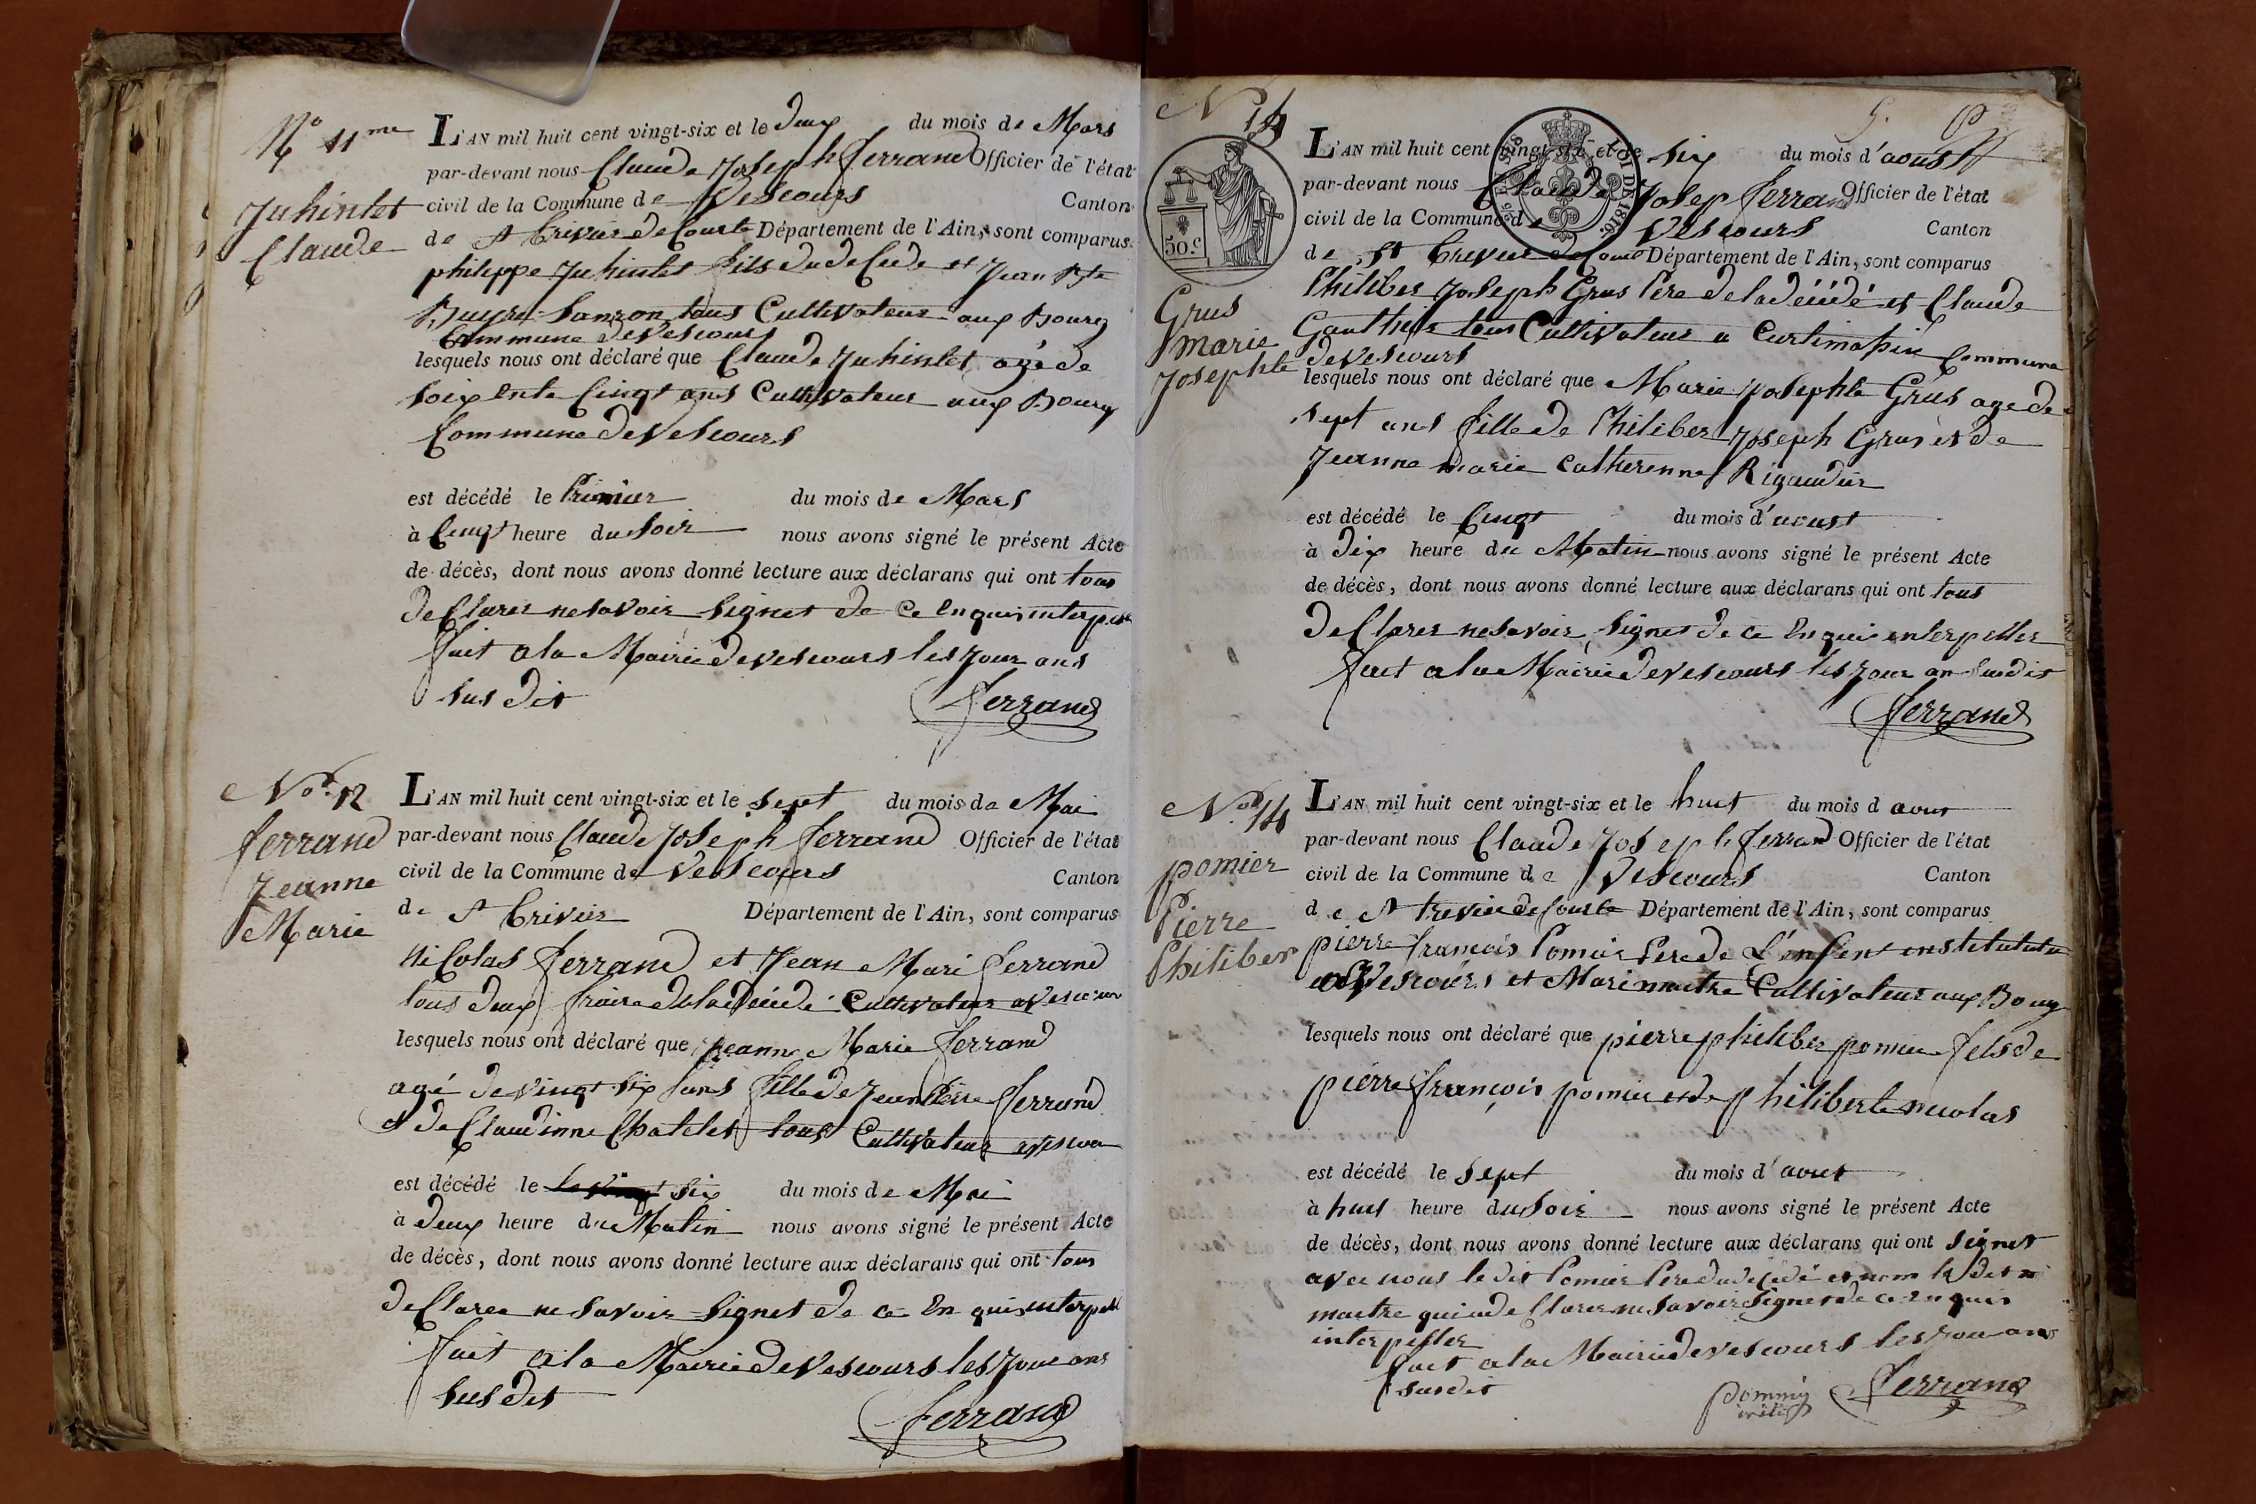 No 11me
Juhinlet
Claude
L'AN mil huit cent vingt-six et le deux du mois de Mars
par-devant nous Claude Joseph Ferrand Officier de l'état
civil de la Commune de Vescours Canton
de St Trivier de Courte Département de l'Ain, sont comparus
philippe Juhinlet fils du deCede et Jean Bte
Buyre Sanzon tous Cultivateur aux Bourg
Commune de Vescours
lesquels nous ont déclaré que Claude Juhinlet agé de
soixente Cinqt ans Cultivateur aux Bourg
Commune de Vescours
est décédé le Primier du mois de Mars
à Cinqt heure du soir nous avons signé le présent Acte
de décès, dont nous avons donné lecture aux déclarans qui ont tous
deClarer ne savoir signet de ce Enquis interpell
fait a la Mairie de Vescours les jour ans
sus dit
Ferrand
No. 12
ferrand
Jeanne
Marie
L'AN mil huit cent vingt-six et le sept du mois de Mai
par-devant nous Claude Joseph Ferrand Officier de l'état
civil de la Commune de Vescours Canton
de St Trivier Département de l'Ain, sont comparus
niColas Ferrand et Jean Mari Ferrand
tous deux fraire de la décédé Cultivateur a Vescour
lesquels nous ont déclaré que Jeanne Marie Ferrand
agé de vingt six ans fille de Jean Pierre Ferrand
et de Claudinne Chatelet tous Cultivateur a vescour
est décédé le six du mois de Mai
à deux heure du Matin nous avons signé le présent Acte
de décès, dont nous avons donné lecture aux déclarans qui ont tous
deClarer ne savoir signet de ce En quis interpell
fait a la Mairie de Vescours les jour ans
sus dit
Ferrand
No 14
5.
50.c
LOI DE 1816.
Grus
marie
Josephte
L'AN mil huit cent vingt-six et le six du mois d'aoust
par-devant nous Claude Josep Ferrand Officier de l'état
civil de la Commune de Vescours Canton
de St Trevier de Cour Département de l'Ain, sont comparus
Philiber Joseph Grus Pere de la décédé et Claude
Gauthier tous Cultivateur a Curtimapin Commune
de Vescours
lesquels nous ont déclaré que Marie Josephte Grus age de
sept ans fille de Philiber Joseph Grus et de
Jeanne marie Catherenne Rigaudier
est décédé le Cinqt du mois d'aoust
à dix heure du Matin nous avons signé le présent Acte
de décès, dont nous avons donné lecture aux déclarans qui ont tous
deClarer ne savoir signet de ce En quis enterpeller
fait a la Mairie de Vescours les jour an susdit
Ferrand
No 14
pomier
Pierre
Philiber
L'AN mil huit cent vingt-six et le huit du mois d aout
par-devant nous Claude Joseph Ferrand Officier de l'état
civil de la Commune de Vescours Canton
de St trevier de Courte Département de l'Ain, sont comparus
pierre françois Pomier Pere de L'enfent institututeu
a Vescours et Mari maitre Cultivateur aux Bourg
lesquels nous ont déclaré que pierre philiber pomier fils de
pierre françois pomier et de philiberte nicolas
est décédé le sept du mois d'aout
à huit heure du soir nous avons signé le présent Acte
de décès, dont nous avons donné lecture aux déclarans qui ont signet
avec nous le dit Pomier Pere du deCédé et non le dit
maitre qui a deClarer ne savoir signet de ce En quis
interpeller
fait a la Mairie de Vescours les jour ans
susdit
Ferrand